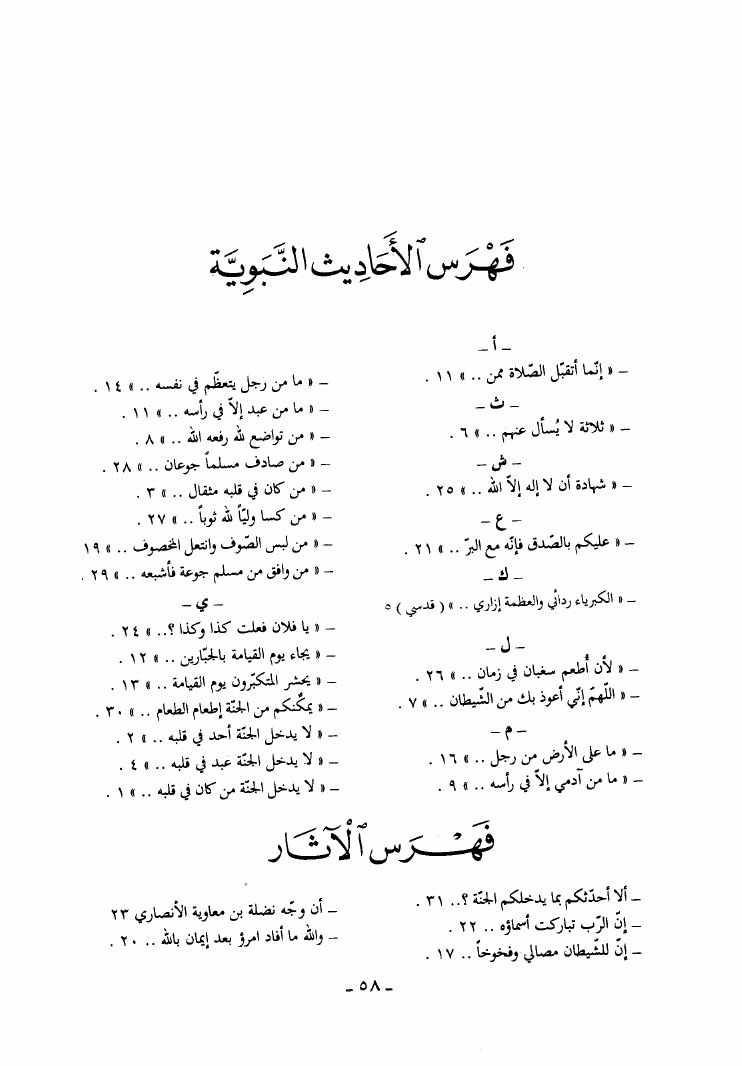 فَهْرَس ٱلأَحَادِيث النَّبَوِيَّة
ـ أ ـ
ـ « إنّما أتقبّل الصّلاة ممن .. » ١١ .
ـ ث ـ
ـ « ثلاثة لا يُسأل عنهم .. » ٦ .
ـ ش ـ
ـ « شهادة أن لا إله إلاّ الله .. » ٢٥ .
ـ ع ـ
ـ « عليكم بالصّدق فإنّه مع البرّ .. » ٢١ .
ـ ك ـ
ـ « الكبرياء ردائي والعظمة إزاري .. » ( قدسي ) ٥
ـ ل ـ
ـ « لأن أُطعم سغبان في زمان .. » ٢٦ .
ـ « اللّهمّ إنّي أعوذ بك من الشّيطان .. » ٧ .
ـ م ـ
ـ « ما على الأرض من رجل .. » ١٦ .
ـ « ما من آدمي إلاّ في رأسه .. » ٩ .
ـ « ما من رجل يتعظّم في نفسه .. » ١٤ .
ـ « ما من عبد إلاّ في رأسه .. » ١١ .
ـ « من تواضع لله رفعه الله .. » ٨ .
ـ « من صادف مسلماً جوعان .. » ٢٨ .
ـ « من كان في قلبه مثقال .. » ٣ .
ـ « من كسا وليّاً لله ثوباً .. » ٢٧ .
ـ « من لبس الصّوف وانتعل المخصوف .. » ١٩
ـ « من وافق من مسلم جوعة فأشبعه .. » ٢٩ .
ـ ي ـ
ـ « يا فلان فعلت كذا وكذا ؟.. » ٢٤ .
ـ « يجاء يوم القيامة بالجبّارين .. » ١٢ .
ـ « يحشر المتكبّرون يوم القيامة .. » ١٣ .
ـ « يمكّنكم من الجنّة إطعام الطعام .. » ٣٠ .
ـ « لا يدخل الجنّة أحد في قلبه .. » ٢ .
ـ « لا يدخل الجنّة عبد في قلبه .. » ٤ .
ـ « لا يدخل الجنّة من كان في قلبه .. » ١ .
فَهْرَس ٱلْآثَار
ـ ألا أحدّثكم بما يدخلكم الجنّة ؟.. ٣١ .
ـ إنّ الرّب تباركت أسماؤه .. ٢٢ .
ـ إنّ للشّيطان مصالي وفخوخاً .. ١٧ .
ـ أن وجّه نضلة بن معاوية الأنصاري ٢٣
ـ والله ما أفاد امرؤ بعد إيمان بالله .. ٢٠ .
ـ ٥٨ ـ